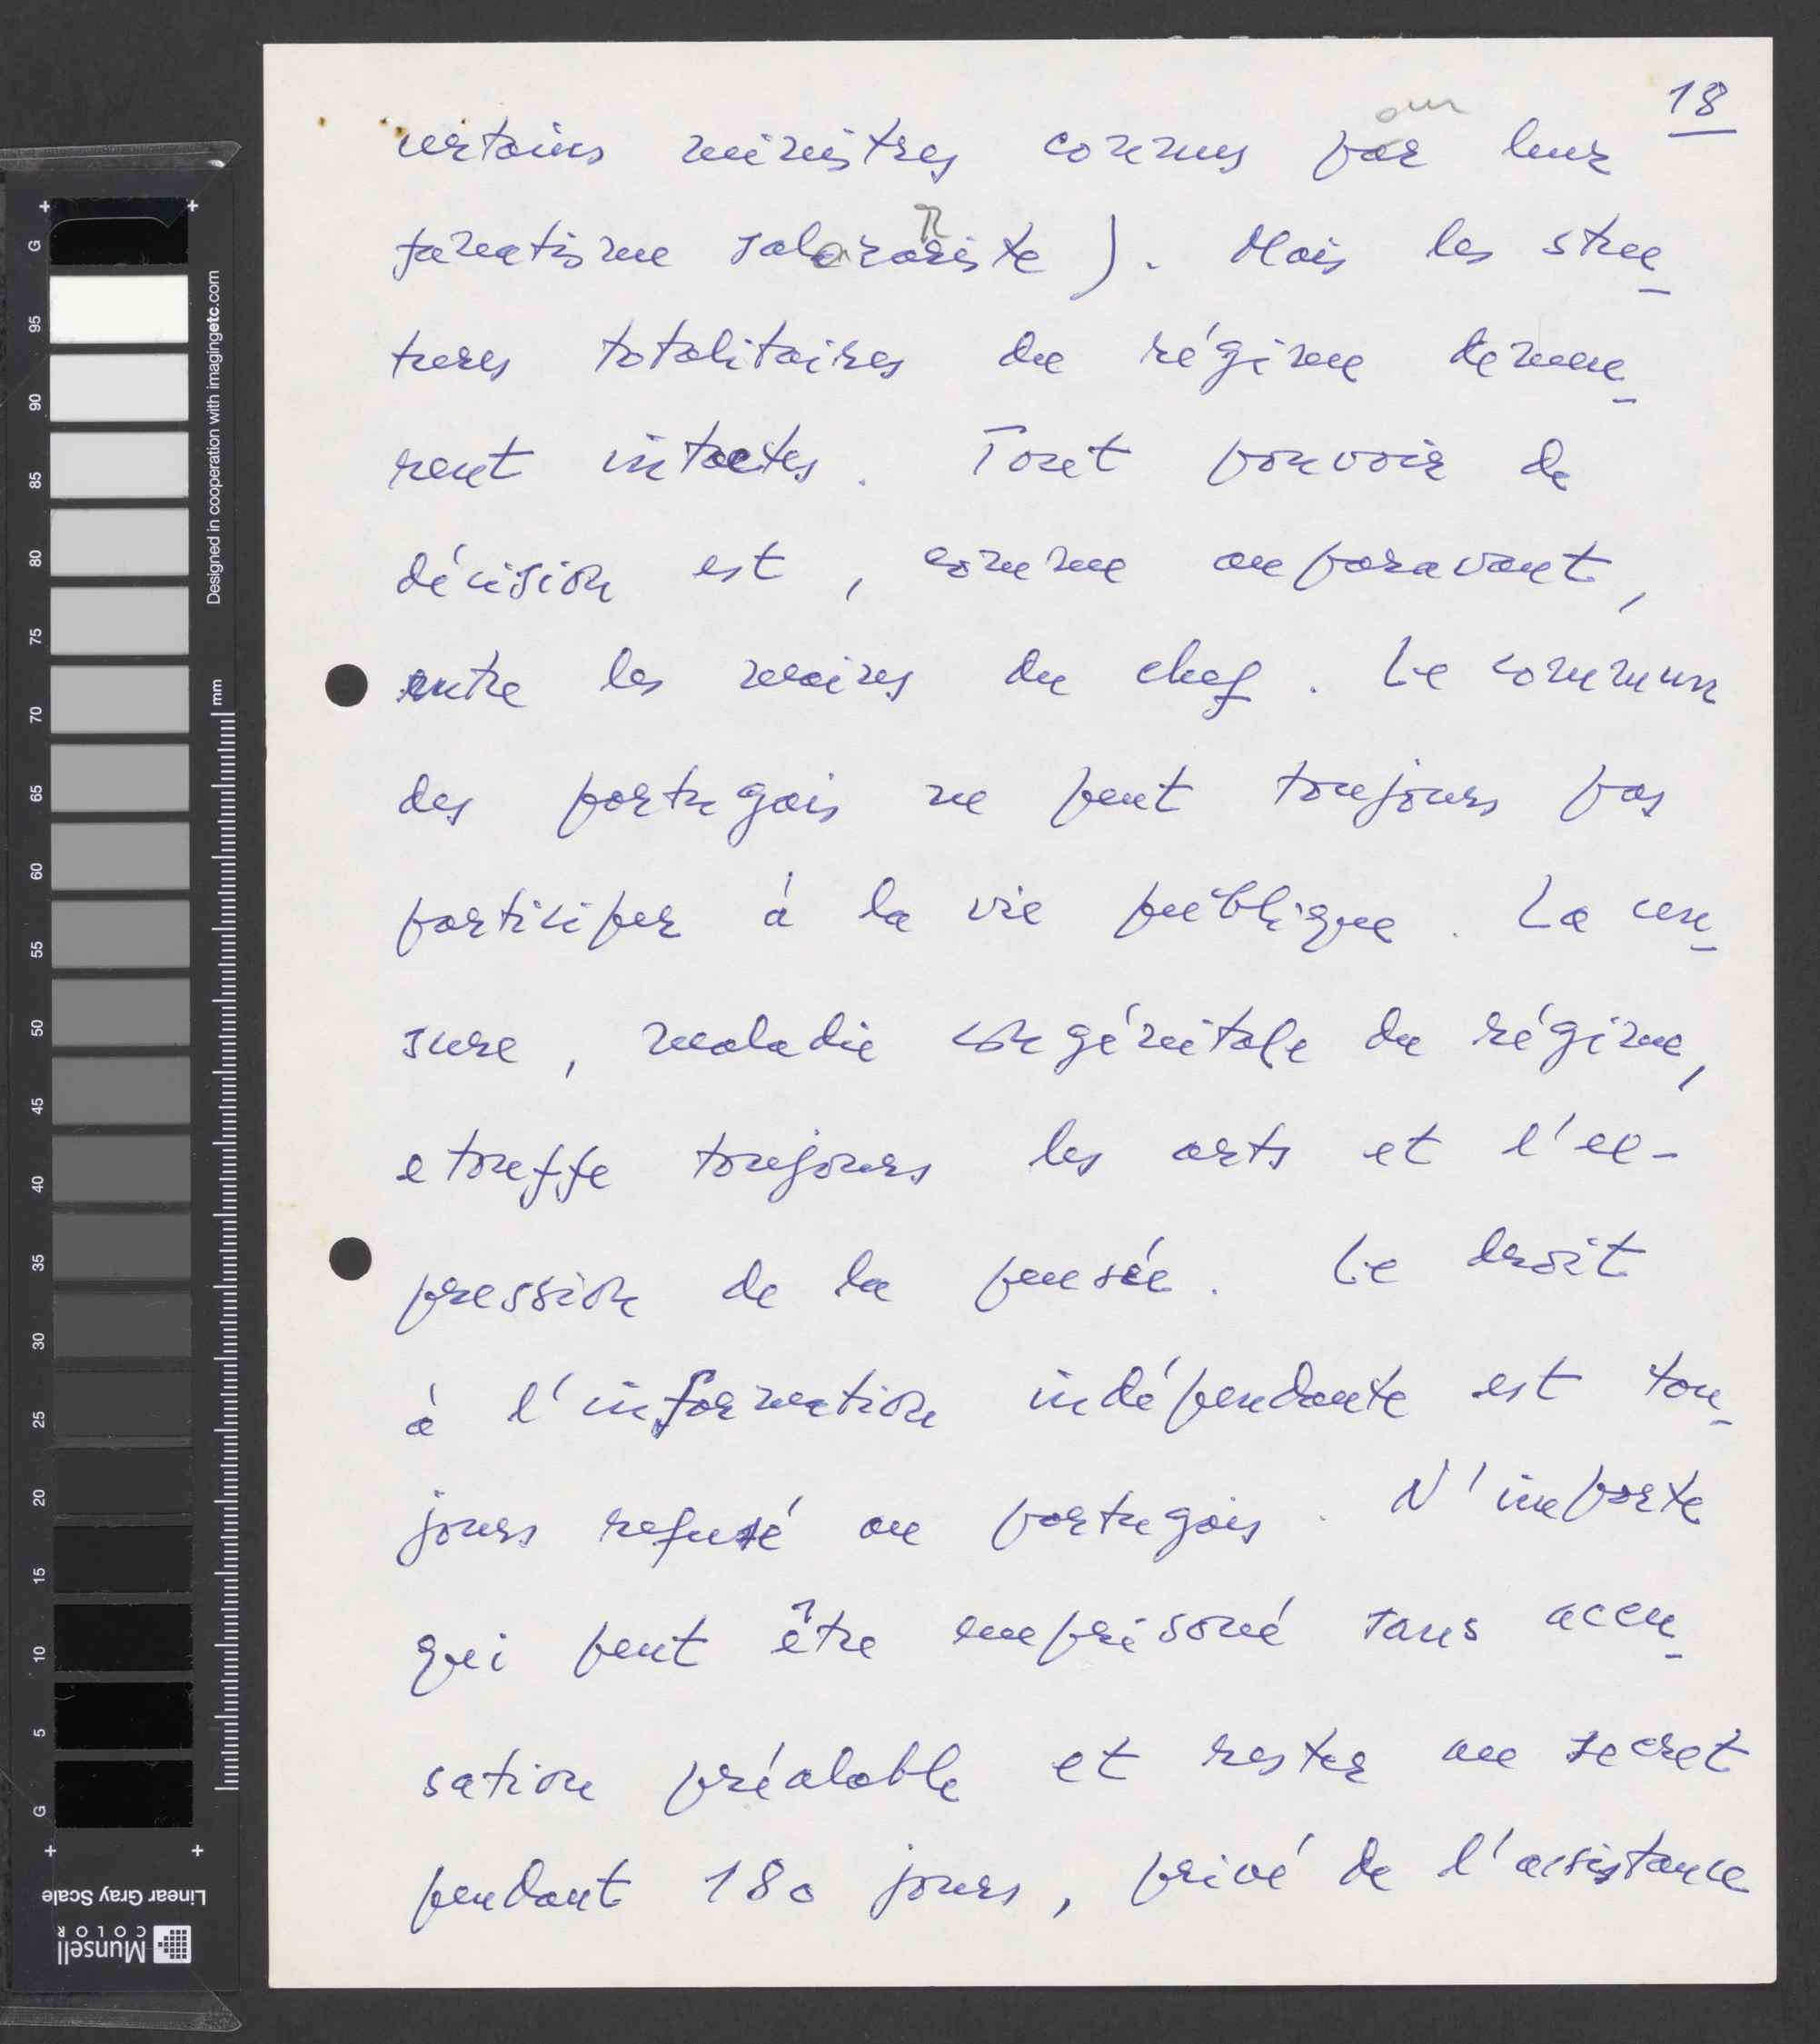 18
our
certains ministres connus par leur
n
fanatisme salazariste ). Mais les struc
tures totalitaires du régime demeu
rent intactes. Tout pouvoir de
décision est, comme auparavant,
entre les mains du chef. Le commun
des portugais ne peut toujours pas
participer à la vie publique. La cen
sure, maladie congénitale du régime,
etouffe toujours les arts et l'ex-
pression de la pensée. Le droit
à l'information indépendante est tou
jours refusé au portugais. N'importe
qui peut être emprisoné sans accu
sation préalable et rester au secret
pendant 180 jours, privé de l'assistance
G 95 90 85 80 75 70 65 60 55 50 45 40 35 30 25 20 15 10 5 G
Designed in cooperation with imagingetc.com
mm
Linear Gray Scale
Munsell
COLOR